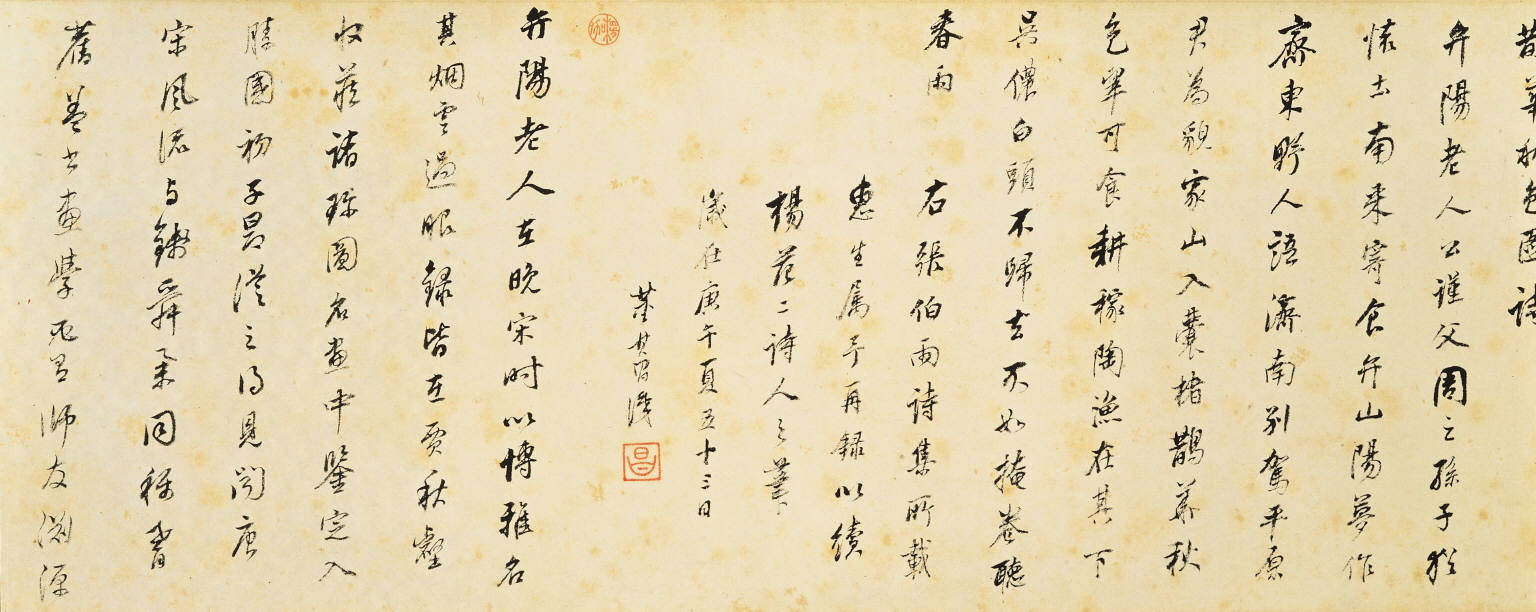 鵲華秋色圖詩
弁陽老人公謹父周之孫子猶
懷土南來寄食弁山陽夢作
齊東野人語濟南別駕平原
君為貌家山入囊楮鵲華秋
色翠可食耕稼陶漁在其下
吳儂白頭不歸去不如掩卷聽
春雨
右張伯雨詩集所載
惠生屬予再錄以續
楊范二詩人之筆
歲在庚午夏五十三日
董其昌識
弁陽老人在晚宋時以博雅名
其烟雲過眼錄皆在賈秋壑
收藏諸珍圖名畫中鑒定入
勝國初子昂從之得見聞唐
宋風流與錢舜舉同稱耆
舊蓋書畫學必有師友淵源